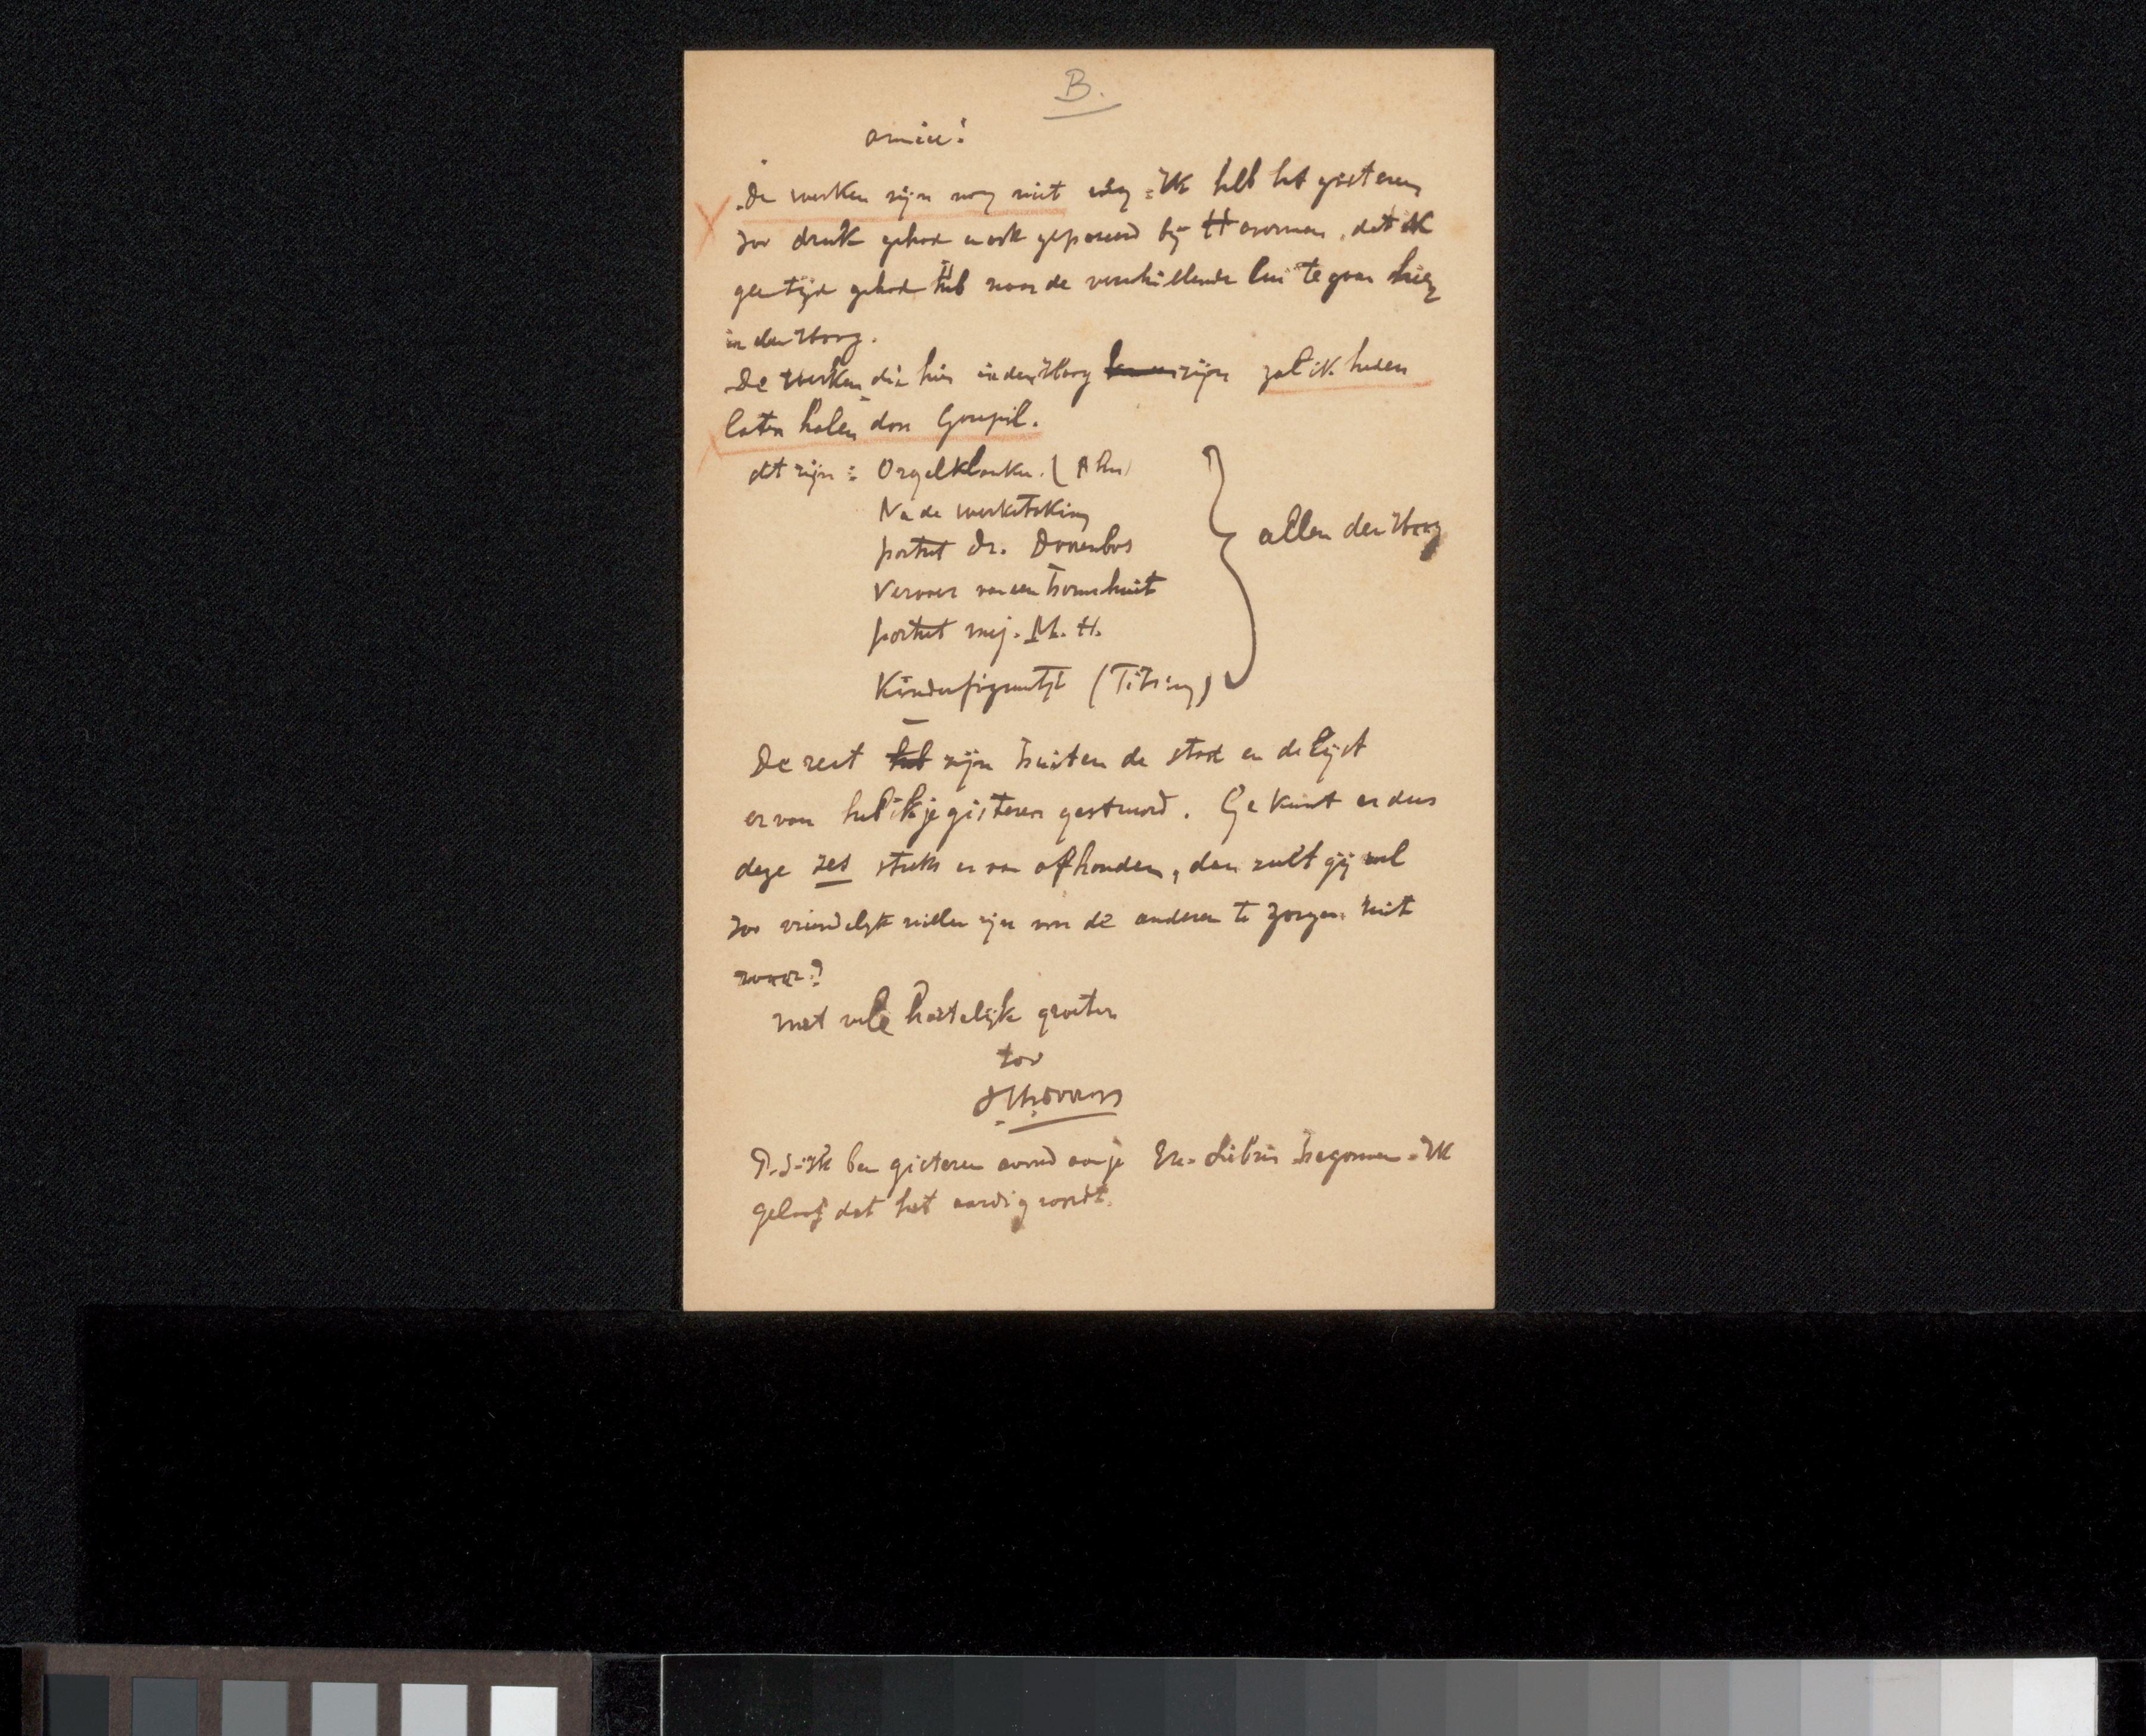 B.
Amice!
De werken zijn nog niet weg. Ik heb het gisteren
zoo druk gehad en ook geposeerd bij Haverman, dat ik
geen tijd gehad heb naar de verschillende lui te gaan hier
in den Haag.
De werken die hier in den Haag zijn zal ik heden
laten halen door Goupil.
dat zijn: Orgelklanken.
Na de werkstaking
portret Dr. Doorenbos
Vervoer van een boomschuit
portret mej. M. H.
Kinderfiguurtje (Titsing)
allen den Haag
De rest heb zijn buiten de stad en de lijst
ervan heb ik je gisteren gestuurd. Ge kunt er dus
deze zes stuks er van afhouden, dan zult gij wel
zoo vriendelijk willen zijn voor de anderen te zorgen niet
waar?
met vele hartelijke groeten
tov
HThToorop
P.S. Ik ben gisteren avond aan je Ex-Libris begonnen. Ik
geloof dat het aardig wordt.